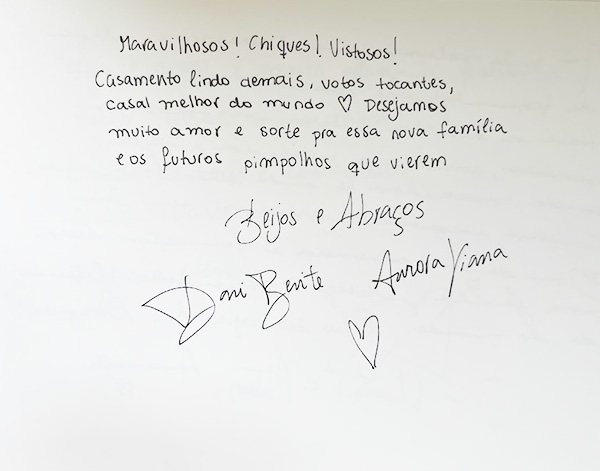 Maravilhosos! Chiques! Vistosos!
Casamento lindo demais, votos tocantes,
casal melhor do mundo ♡ Desejamos
muito amor e sorte pra essa nova família
e os futuros pimpolhos que vierem
Beijos e Abraços
Dani Benite Aurora Viana
♡